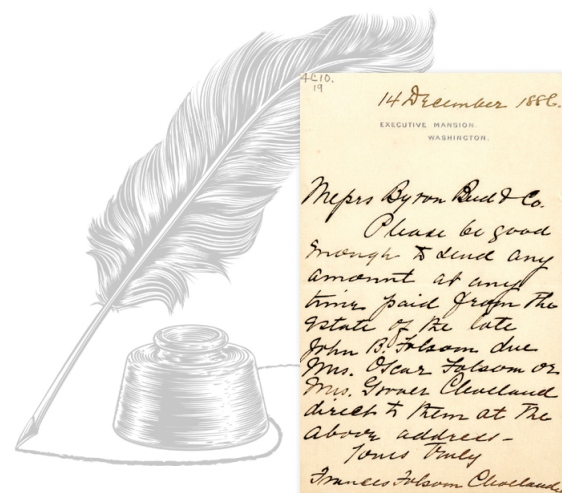 4C10.
19
14 December 1886.
EXECUTIVE MANSION.
WASHINGTON.
Messrs Byron Bud & Co.
Please be good
enough to send any
amount at any
time paid from the
estate of the late
John B. Folsom due
Mrs. Oscar Folsom or
Mrs. Grover Cleveland
direct to them at the
above address -
Yours Truly
Frances Folsom Cleveland